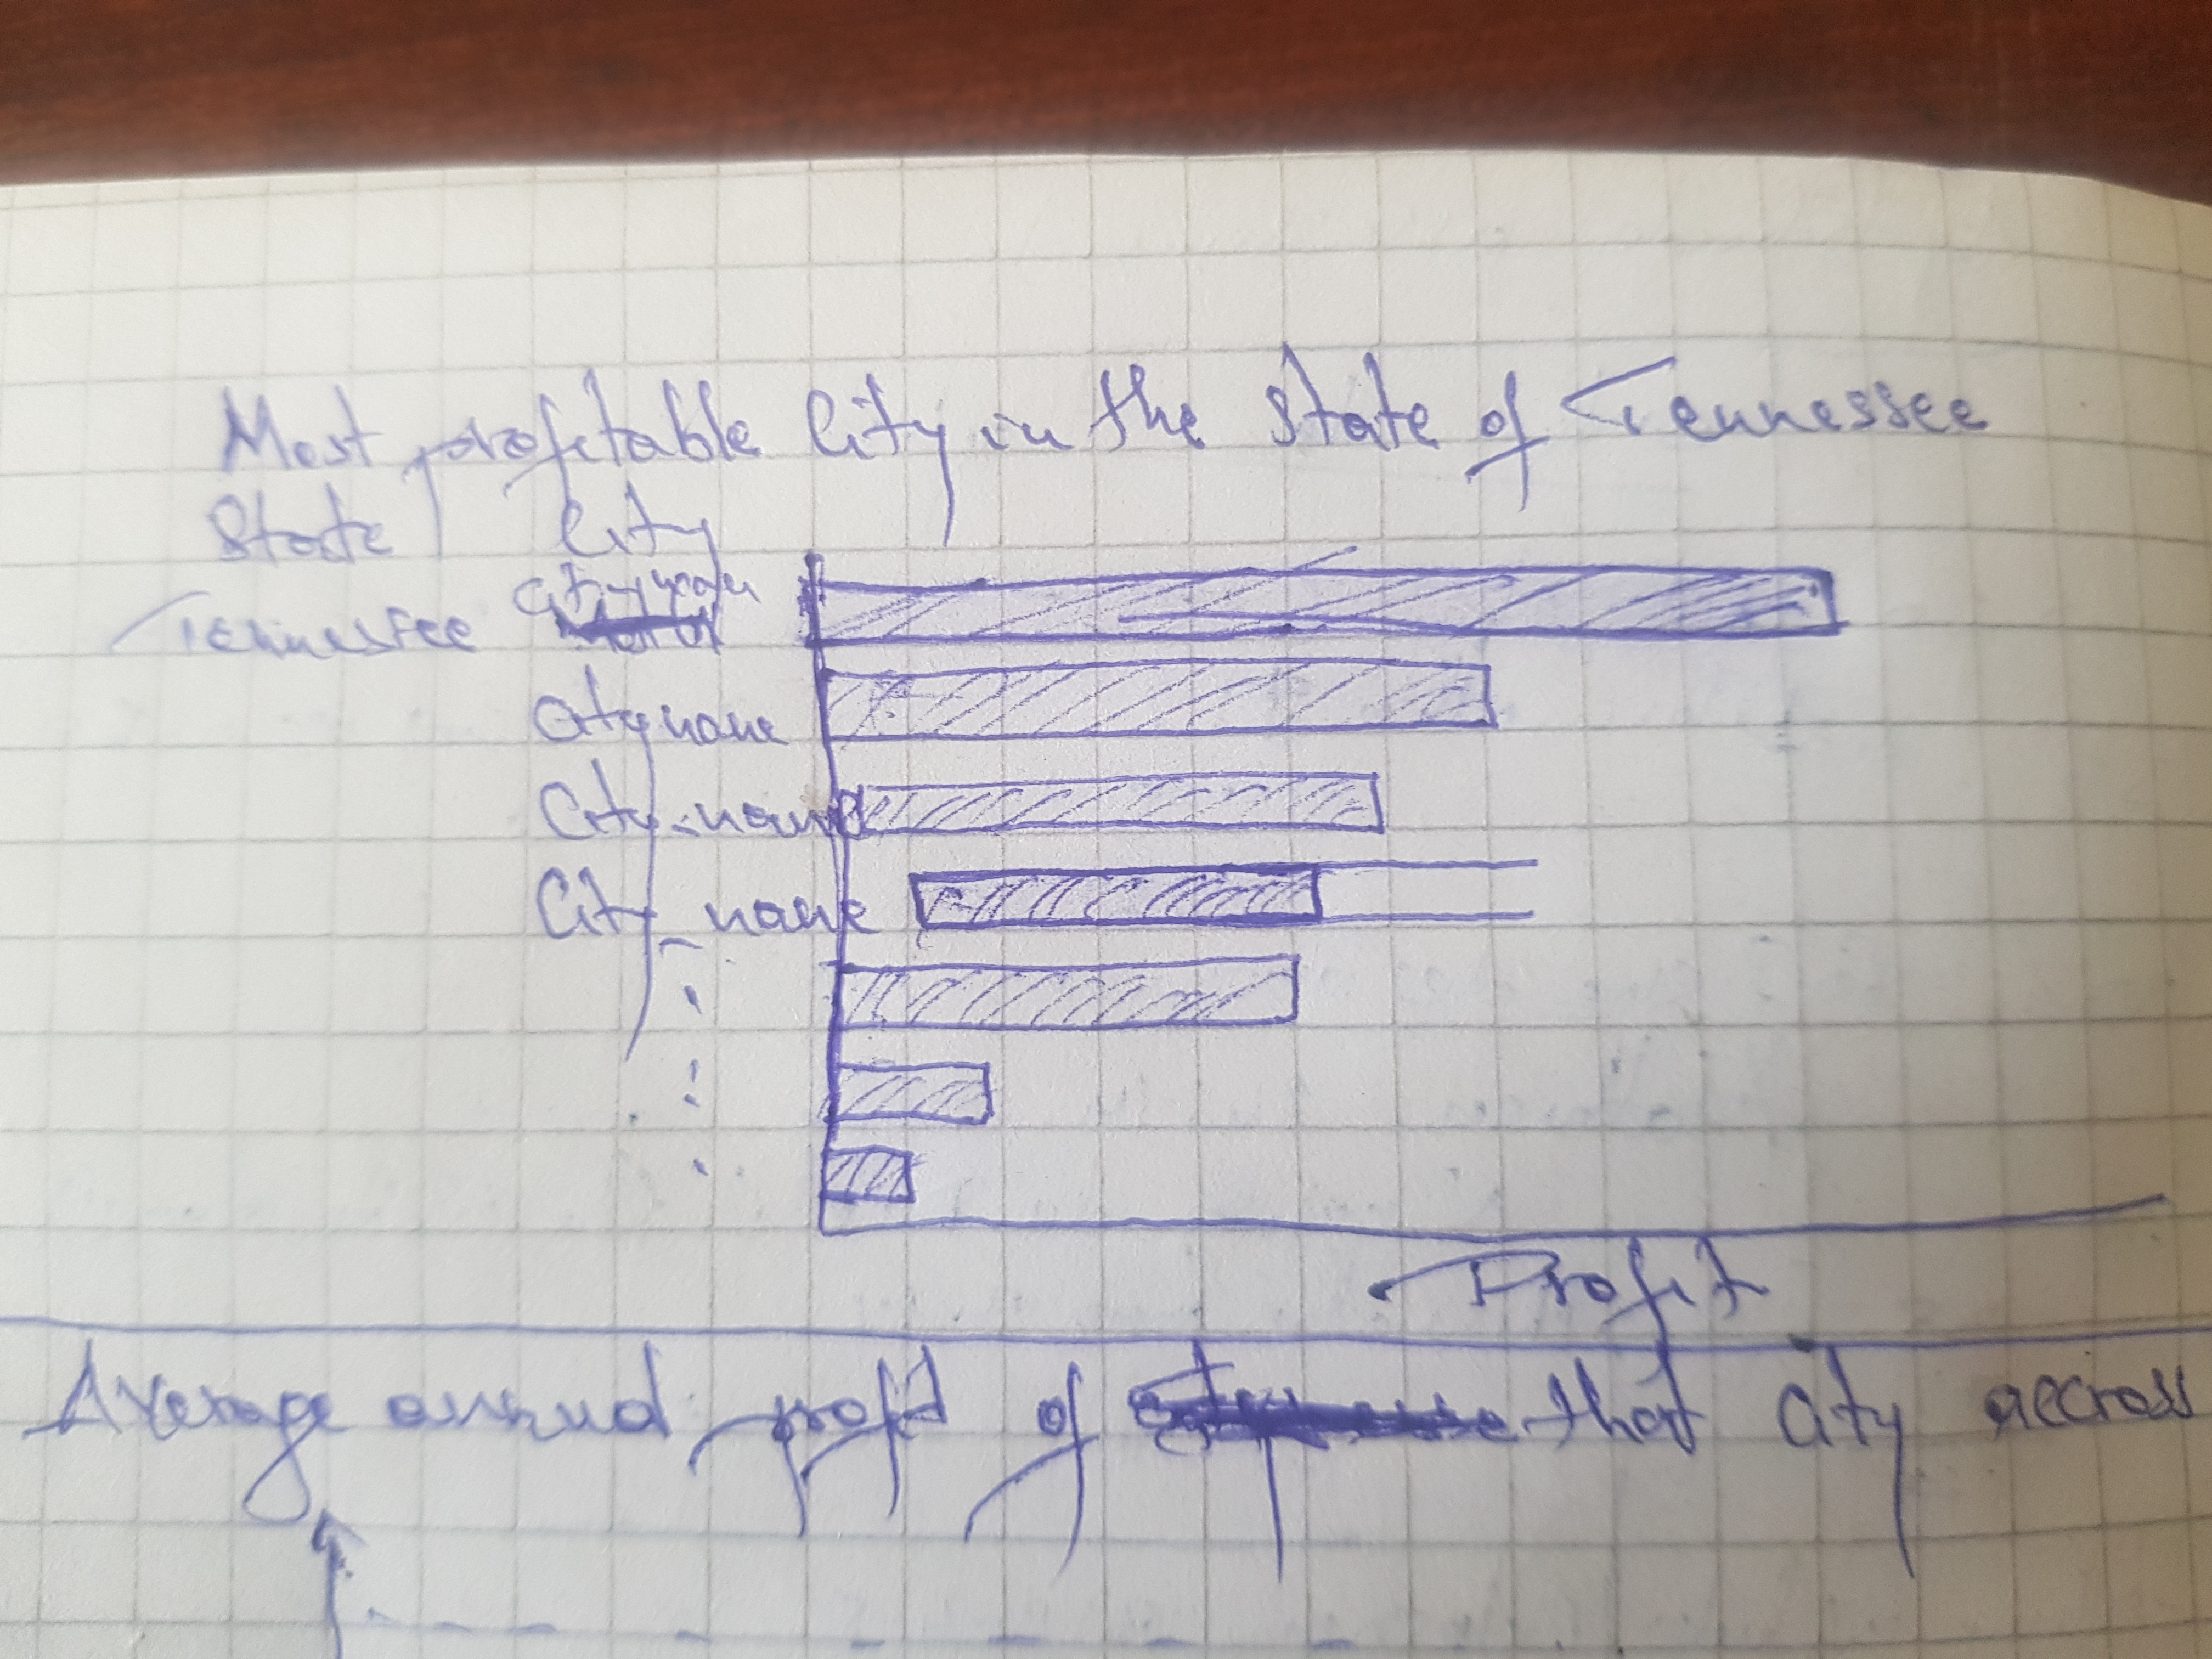 Most profitable City in the State of Tennessee
State City
Tennessee City name
City name
City name
City name
Profit
Average annual profit of that City across